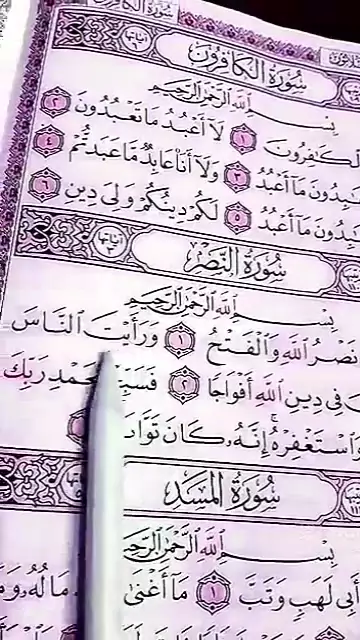 سُورَةُ الْكَافِرُونَ
بِسْمِ اللَّهِ الرَّحْمَٰنِ الرَّحِيمِ
لْكَٰفِرُونَ ١ لَآ أَعْبُدُ مَا تَعْبُدُونَ ٢
بِدُونَ مَآ أَعْبُدُ ٣ وَلَآ أَنَا۠ عَابِدٌ مَّا عَبَدتُّمْ ٤
بِدُونَ مَآ أَعْبُدُ ٥ لَكُمْ دِينُكُمْ وَلِىَ دِينِ ٦
سُورَةُ النَّصْرِ
بِسْمِ اللَّهِ الرَّحْمَٰنِ الرَّحِيمِ
نَصْرُ ٱللَّهِ وَٱلْفَتْحُ ١ وَرَأَيْتَ ٱلنَّاسَ
فِى دِينِ ٱللَّهِ أَفْوَاجًا ٢ رَبِّكَ
وَٱسْتَغْفِرْهُ إِنَّهُۥ كَانَ
سُورَةُ الْمَسَدِ
بِسْمِ اللَّهِ الرَّحْمَٰنِ
أَبِى لَهَبٍ وَتَبَّ ١ مَآ أَغْنَىٰ مَالُهُۥ